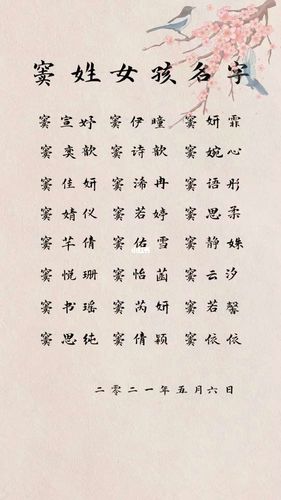 窦姓女孩名字
窦宣妤 窦伊瞳 窦妍霏
窦奕歆 窦诗歆 窦婉心
窦佳妍 窦浠冉 窦语彤
窦婧仪 窦若婷 窦思柔
窦芊倩 窦佑雪 窦静姝
窦悦珊 窦怡菡 窦云汐
窦书瑶 窦芮妍 窦若馨
窦思纯 窦倩颖 窦依依
二零二一年五月六日